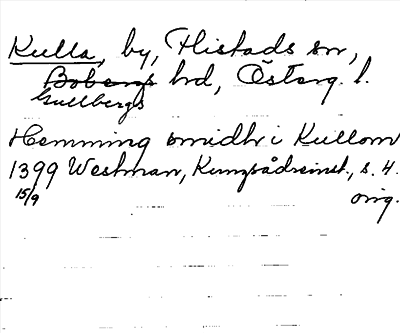 Kulla, by, Flistads sn,
Bobergs hd, Österg. l.
Gullbergs
Hemming smidhr i Kullom
1399 Westman, Kungsådreinst., s. 4.
15/9 orig.